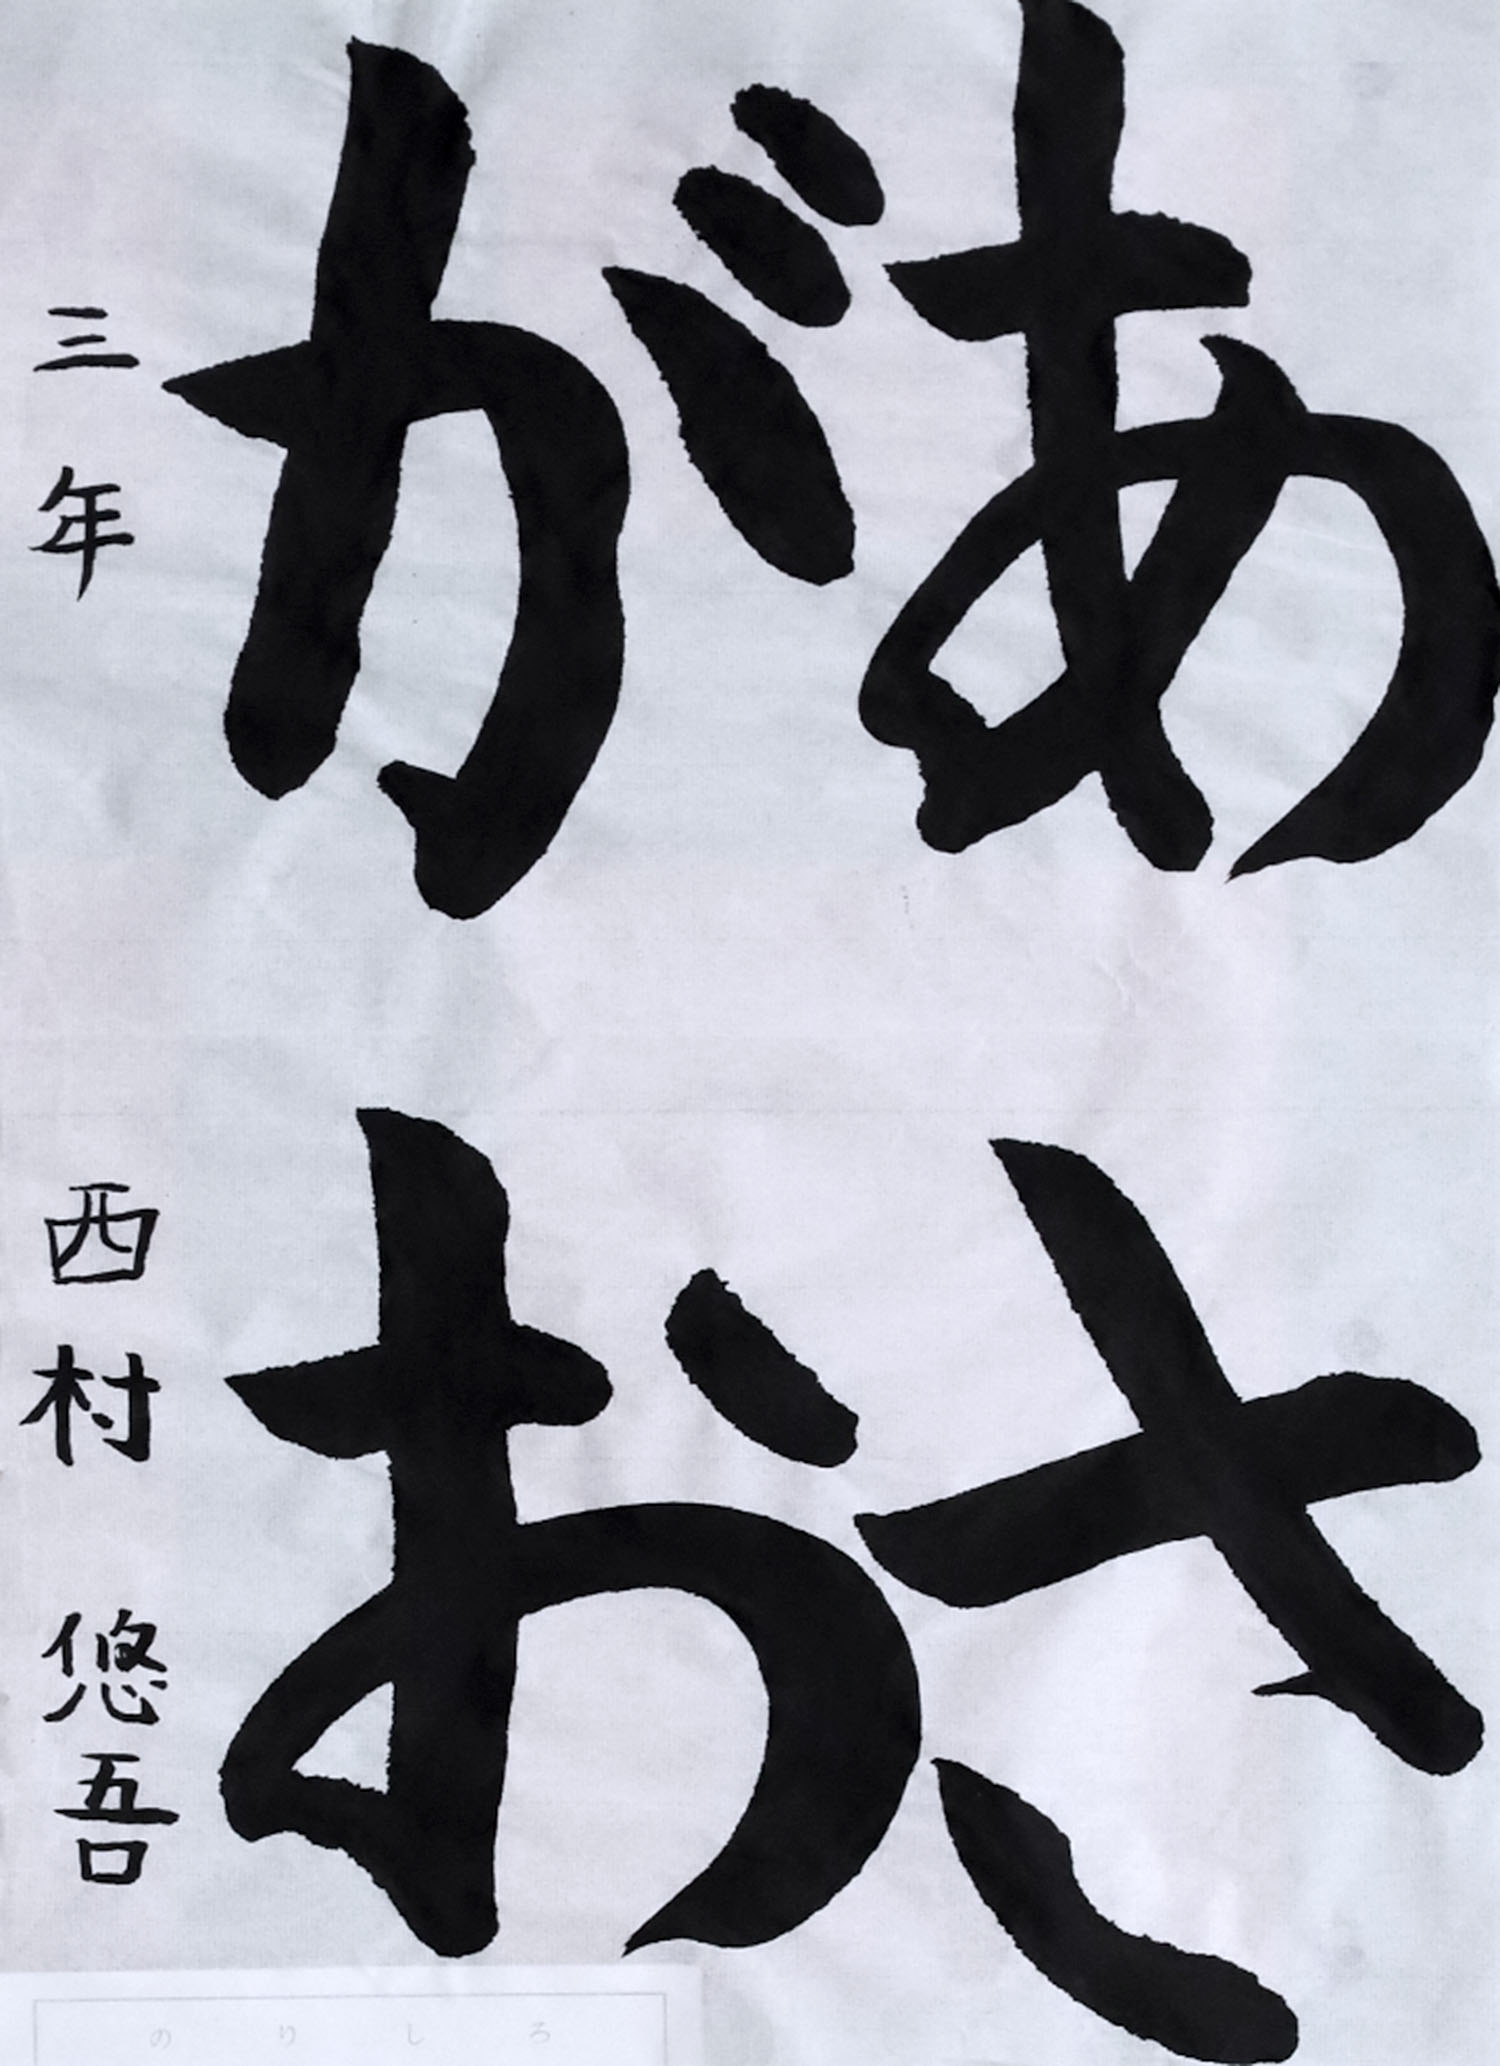 あさ
がお
三年 西村 悠吾
のりしろ